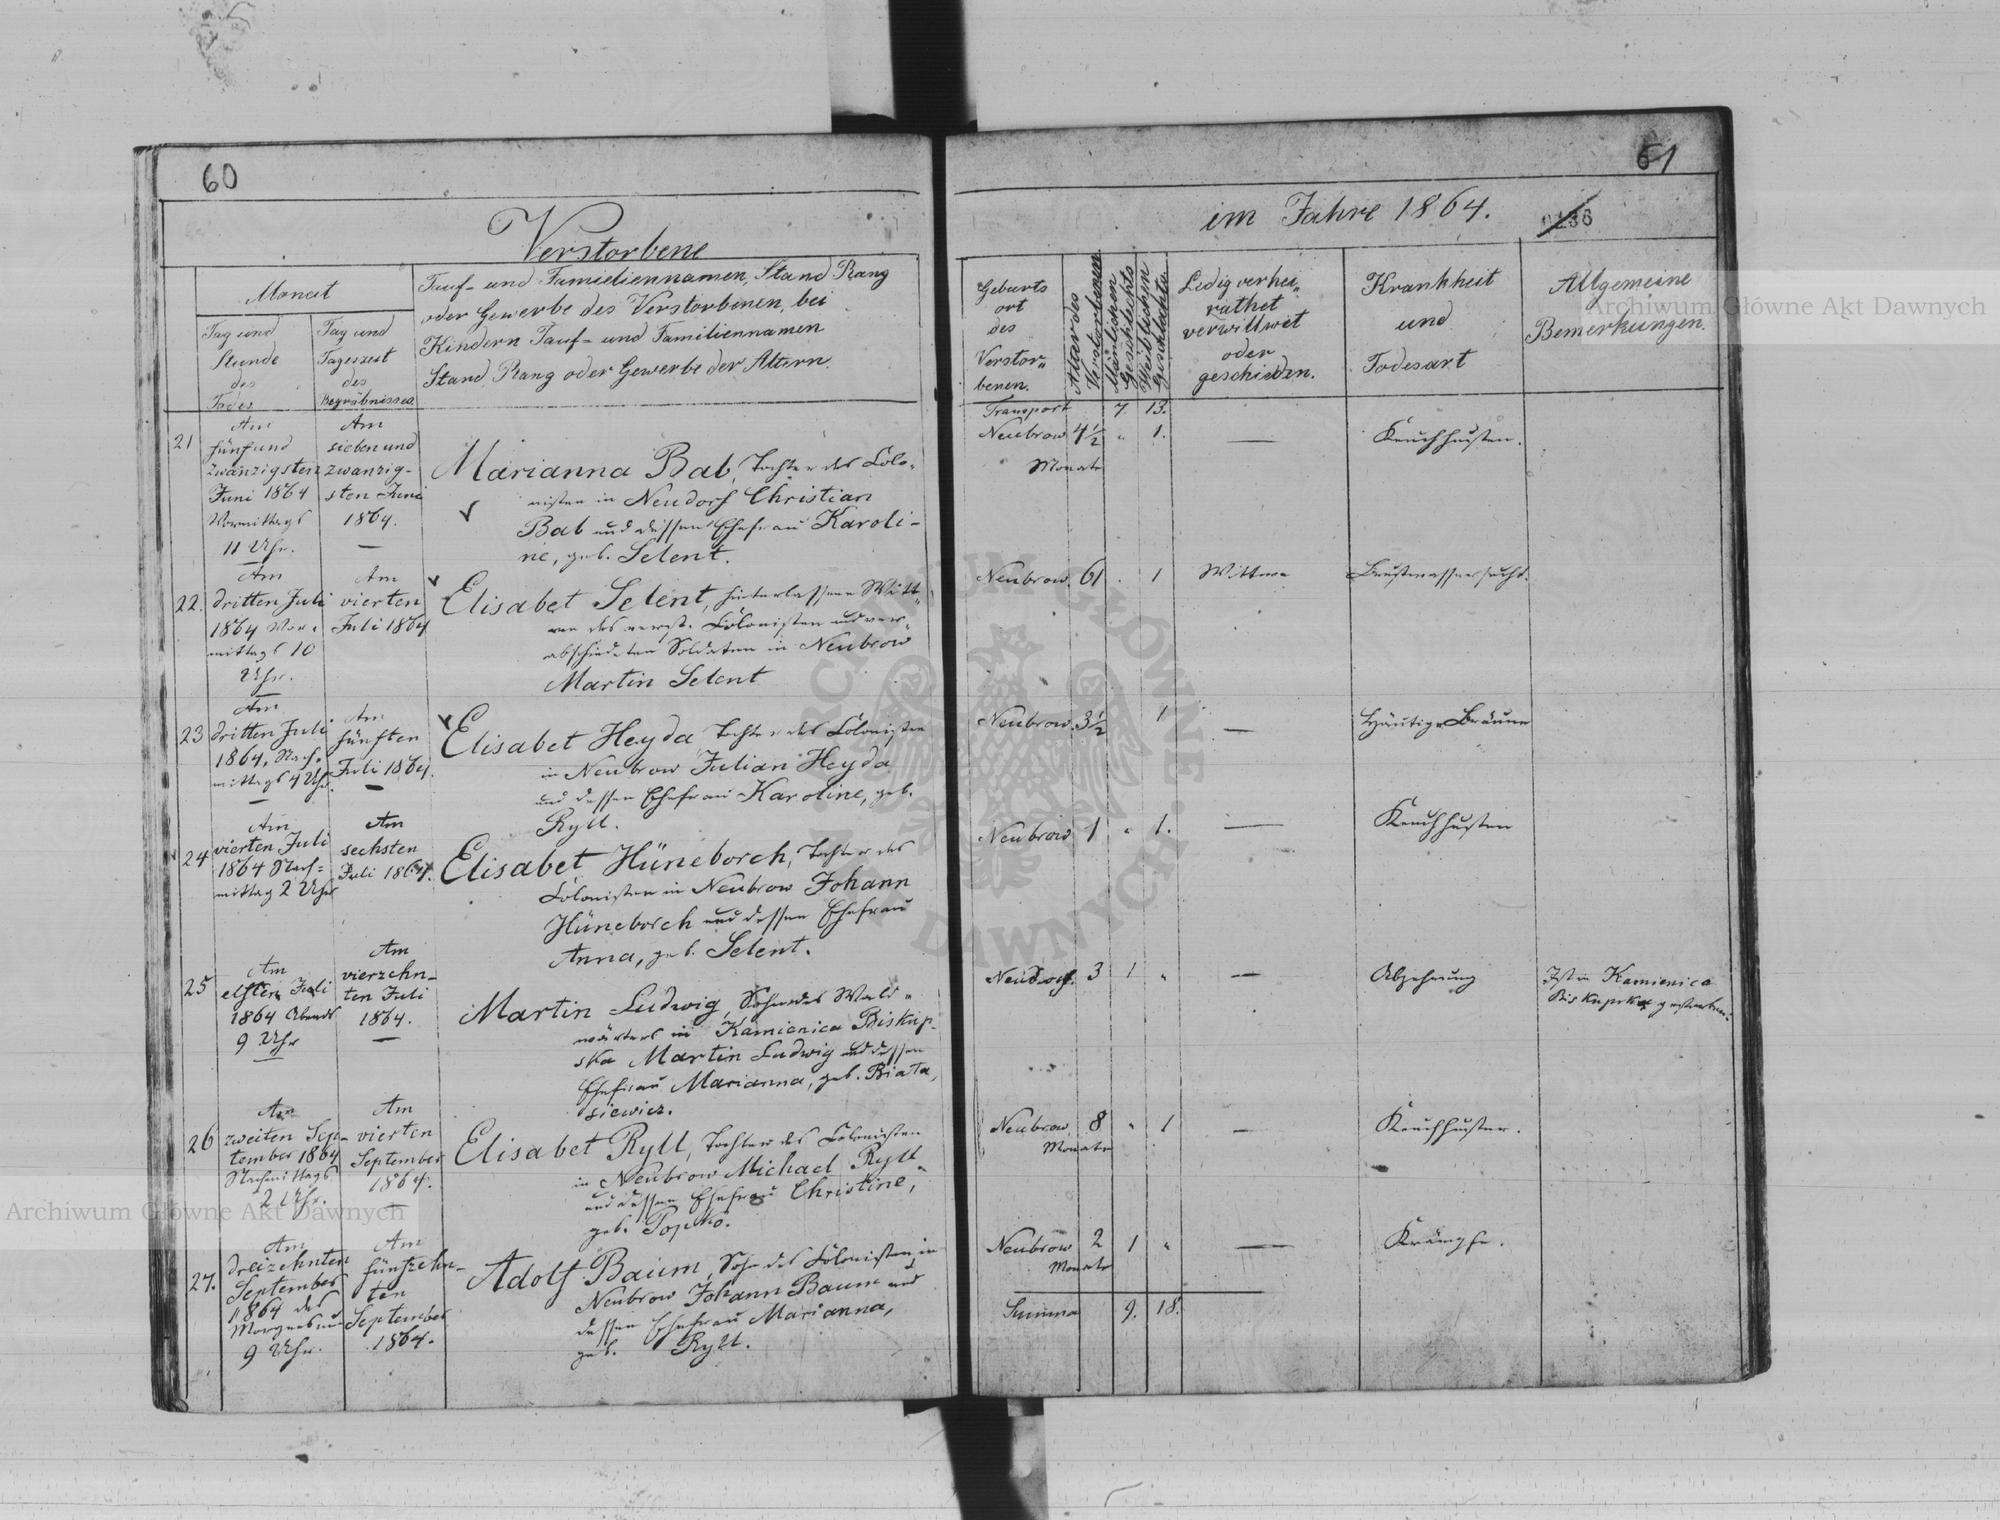 60
Verstorbene
Monat
Tag und
Stunde
des
Todes
Tag und
Tageszeit
des
Begräbnisses
Tauf- und Familiennamen, Stand Rang
oder Gewerbe des Verstorbenen, bei
Kindern Tauf- und Familiennamen
Stand, Rang oder Gewerbe der Altern.
21
Am
fünfund
zwanzigsten
Juni 1864
Vormittags
11 Uhr.
Am
sieben und
zwanzig-
sten Juni
1864.
Marianna Bab, Tochter des Colo-
nisten in Neudorf Christian
Bab und dessen Ehefrau Karoli-
ne, geb. Selent.
22.
Am
dritten Juli
1864 Vor-
mittags 10
Uhr.
Am
vierten
Juli 1864
Elisabet Selent, hinterlassene Witt-
we des verst. Colonisten und ver-
abschiedeten Soldaten in Neubrow
Martin Selent
23
Am
dritten Juli
1864, Nach-
mittags 4 Uhr.
Am
fünften
Juli 1864.
Elisabet Heyda, Tochter des Colonisten
in Neubrow Julian Heyda
und dessen Ehefrau Karoline, geb.
Ryll.
24
Am
vierten Juli
1864 Nach-
mittag 2 Uhr
Am
sechsten
Juli 1864.
Elisabet Hüneborch, Tochter des
Colonisten in Neubrow Johann
Hüneborch und dessen Ehefrau
Anna, geb. Selent.
25
Am
elften Juli
1864 Abends
9 Uhr
Am
vierzehn-
ten Juli
1864.
Martin Ludwig, Sohn des Wald-
wärters in Kamienica Biskup-
ska Martin Ludwig und dessen
Ehefrau Marianna, geb. Biała-
siewicz.
26
Am
zweiten Sep-
tember 1864
Nachmittags
2 Uhr.
Am
vierten
September
1864.
Elisabet Ryll, Tochter des Colonisten
in Neubrow Michael Ryll
und dessen Ehefrau Christine,
geb. Popko.
27.
Am
dreizehnten
September
1864 des
Morgens um
9 Uhr.
Am
fünfzehn-
ten
September
1864.
Adolf Baum, Sohn des Colonisten in
Neubrow Johann Baum und
dessen Ehefrau Marianna,
geb. Ryll.
61
im Jahre 1864.
Geburts
ort
des
Verstor-
benen.
Alter des
Verstorbenen
Mänlichen
Geschlechts
Weiblichen
Geschlechts
Ledig verhei-
rathet
verwittwet
oder
geschieden.
Krankheit
und
Todesart
Allgemeine
Bemerkungen.
Transport 7 13.
Neubrow 4½ " 1. — Keuchhusten.
Monate
Neubrow. 61 . 1 Wittwe Brustwassersucht.
Neubrow. 3½ 1 — Häutige Bräune
Neubrow 1 " 1. — Keuchhusten
Neudorf. 3 1 " — Abzehrung Ist in Kamienica
Biskupska gestorben.
Neubrow 8 " 1 — Keuchhusten.
Monate
Neubrow 2 1 " — Krämpfe.
Monate
Summa 9. 18.
Archiwum Główne Akt Dawnych
Archiwum Główne Akt Dawnych
ARCHIWUM GŁÓWNE AKT DAWNYCH